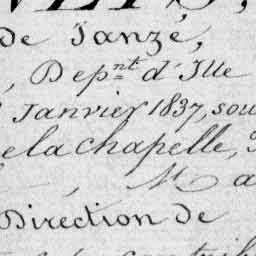 de Janzé,
, Dep.nt d'Ille
Janvier 1837, sou
e la chapelle,
M a
Direction de